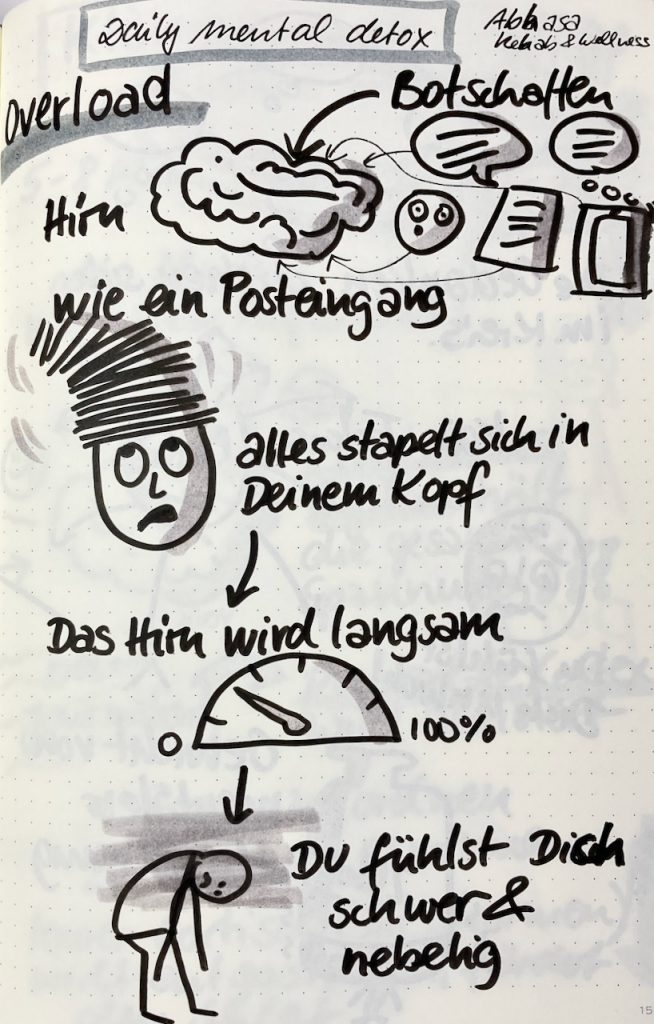 Daily mental detox
Kebab & Wellness
Overload
Botschaften
Hirn
wie ein Posteingang
alles stapelt sich in
Deinem Kopf
Das Hirn wird langsam
0
100%
Du fühlst Dich
schwer &
nebelig
15